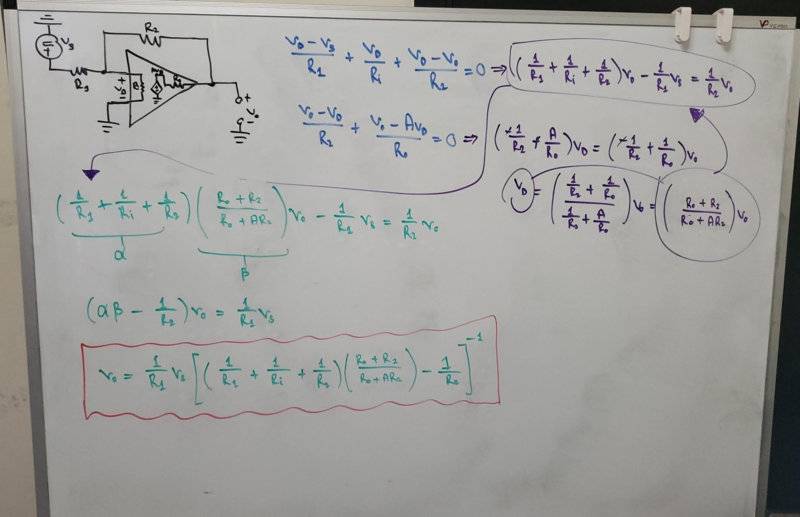 R₂
Vs
R₁
+ V_D −
Ri
+ Vo −
(V_D − Vs)/R₁ + V_D/Ri + (V_D − Vo)/R₂ = 0 ⇒ (1/R₁ + 1/Ri + 1/R₂) V_D − 1/R₁ Vs = 1/R₂ Vo
(Vo − V_D)/R₂ + (Vo − A V_D)/Ro = 0 ⇒ (1/R₂ + A/Ro) V_D = (1/R₂ + 1/Ro) Vo
V_D = ((1/R₂ + 1/Ro)/(1/Ro + A/Ro)) Vo = ((Ro + R₂)/(Ro + AR₂)) Vo
(1/R₁ + 1/Ri + 1/R₂) ((Ro + R₂)/(Ro + AR₂)) Vo − 1/R₁ Vs = 1/R₂ Vo
α
β
(αβ − 1/R₂) Vo = 1/R₁ Vs
Vo = 1/R₁ Vs [(1/R₁ + 1/Ri + 1/R₂) ((Ro + R₂)/(Ro + AR₂)) − 1/Ro]⁻¹